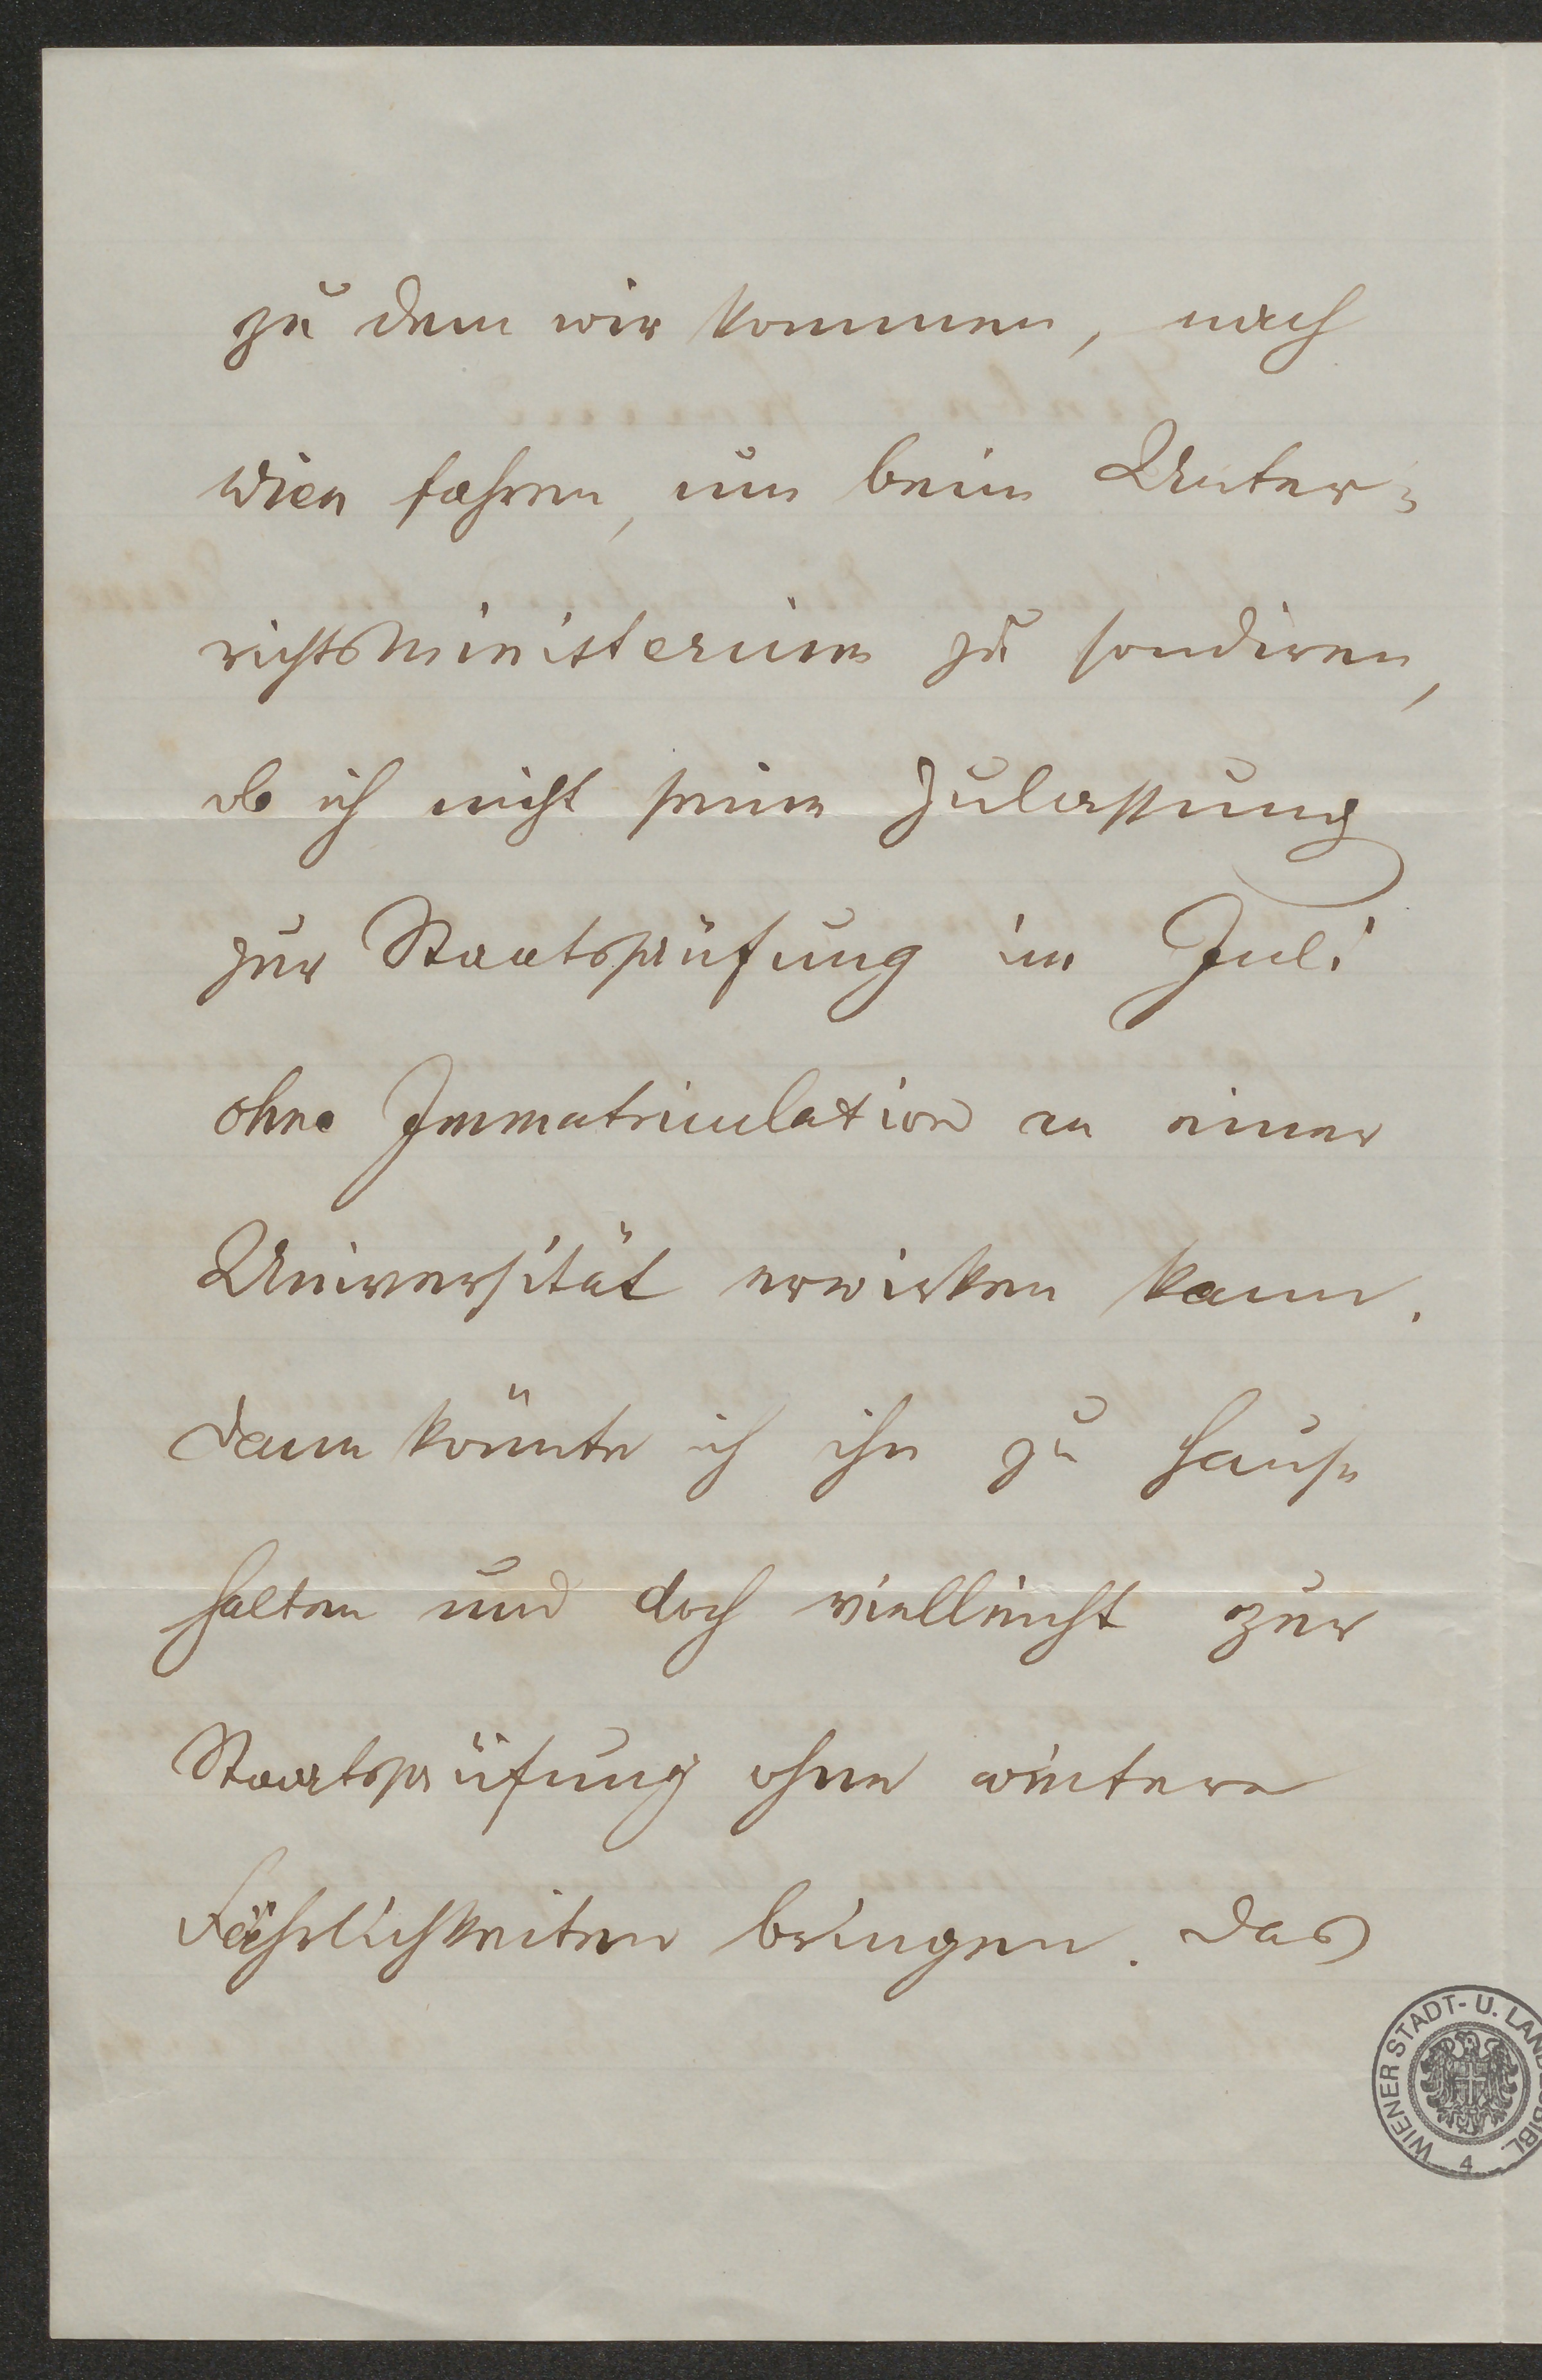 zu dem wir kommen, nach
Wien fahren, um beim Unter-
richtsministerium zu sondiren,
ob ich nicht seine Zulassung
zur Staatsprüfung im Juli
ohne Immatriculation an einer
Universität erwirken kann.
Dann könnte ich ihn zu Hause
halten und doch vielleicht zur
Staatsprüfung ohne weitere
Fährlichkeiten bringen. Das
WIENER STADT- U. LANDESBIBL.
4